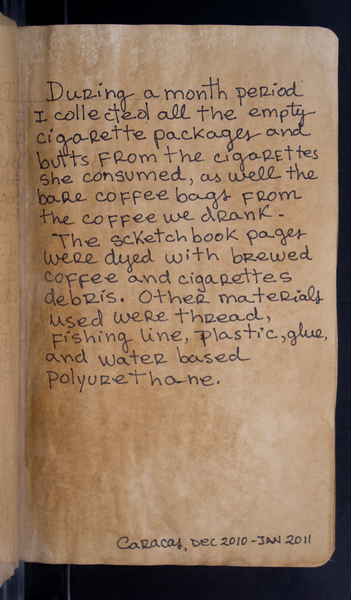 During a month period
I collected all the empty
cigarette packages and
butts from the cigarettes
she consumed, as well the
bare coffee bags from
the coffee we drank.
The scketchbook pages
were dyed with brewed
coffee and cigarettes
debris. Other materials
used were thread,
fishing line, plastic, glue,
and water based
polyurethane.
Caracas, Dec 2010 - Jan 2011